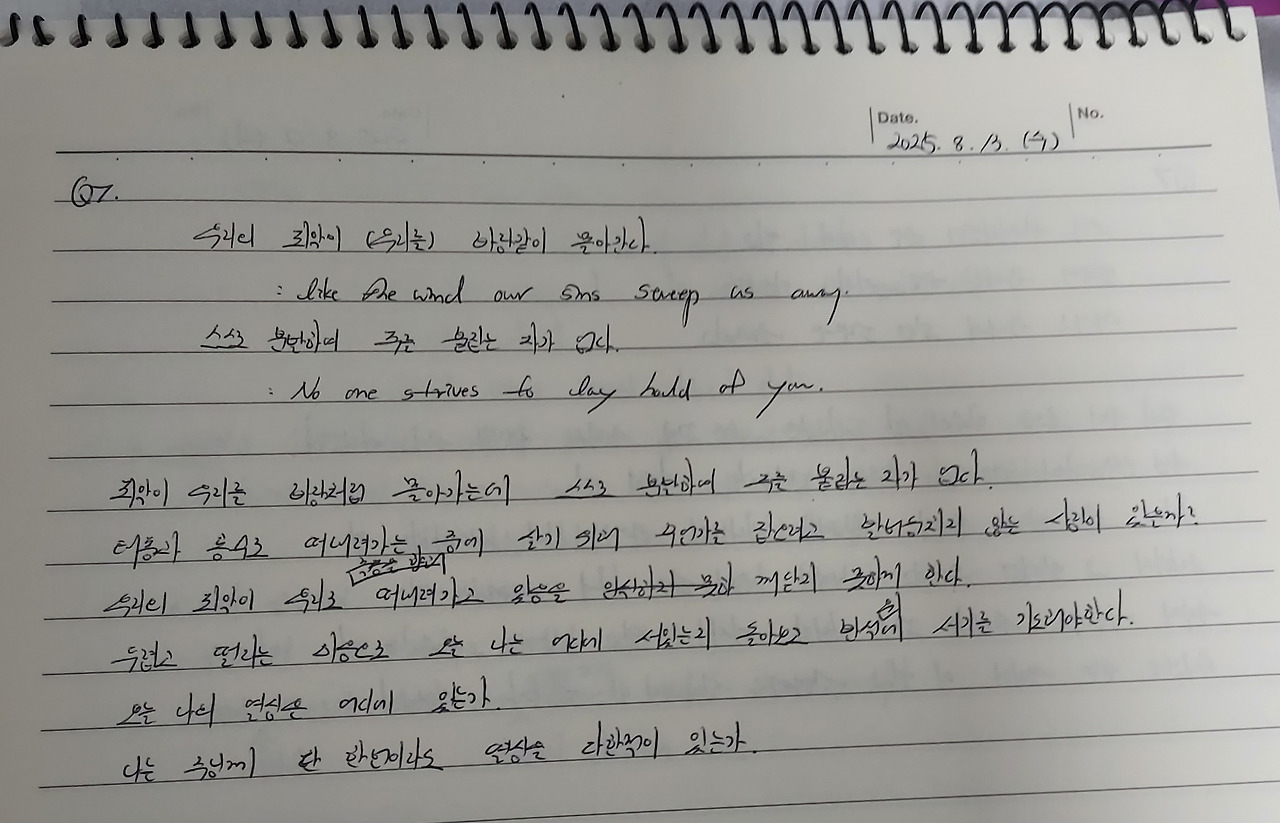 Date. No.
2025. 8. 13. (수)
Q7.
우리의 죄악이 (우리를) 바람같이 몰아간다.
: like the wind our sins sweep us away.
스스로 분발하여 주를 붙잡는 자가 없다.
: No one strives to lay hold of you.
죄악이 우리를 바람처럼 몰아가는데 스스로 분발하여 주를 붙잡는 자가 없다.
태풍과 홍수로 떠내려가는 중에 살기 위해 무언가를 잡으려고 발버둥치지 않는 사람이 있는가?
우리의 죄악이 우리로 떠내려가고 있음을 인식하지 못하 깨닫지 못하게 한다.
두렵고 떨리는 마음으로 오늘 나는 어디에 서있는지 돌아보고 반석 위에 서기를 기도해야한다.
오늘 나의 열심은 어디에 있는가.
나는 주님께 단 한번이라도 열심을 다한적이 있는가.